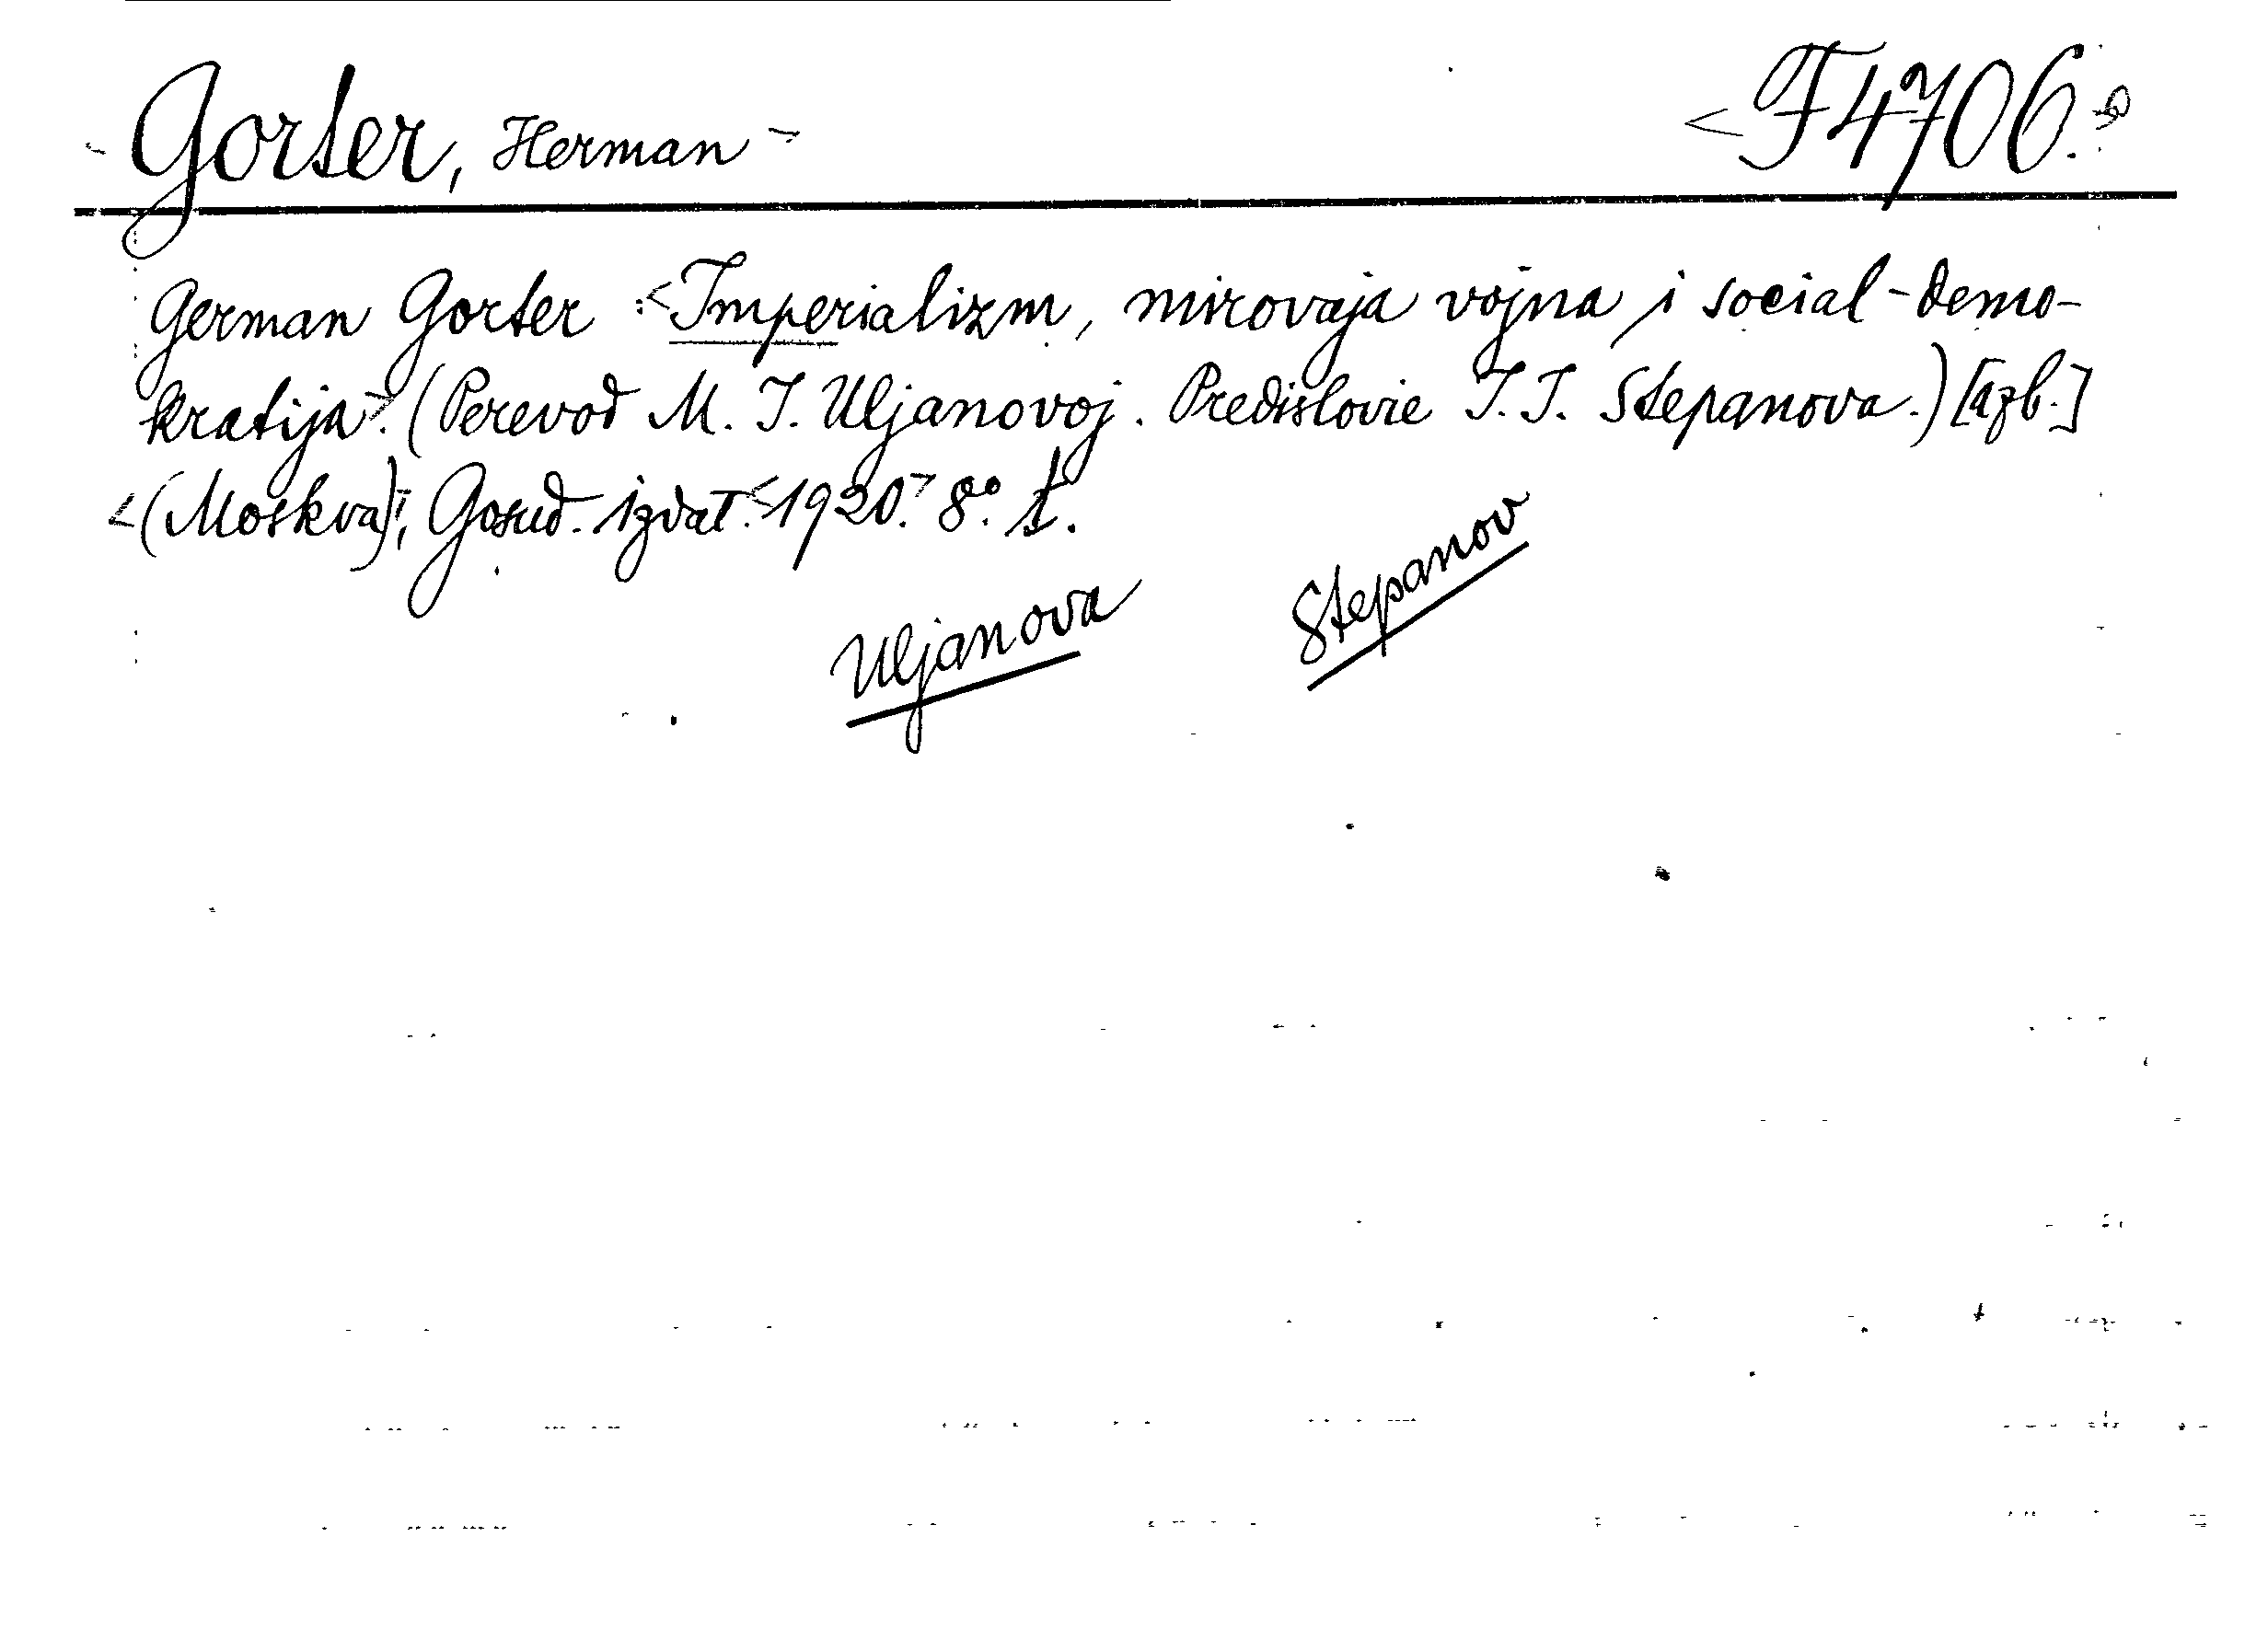 Gorter, Herman
<F4706.>
German Gorter: <Imperializm, mirovaja vojna i social-demo-
kratija>. (Perevod M. I. Uljanovoj. Predislovie I. I. Stepanova.) [azb.]
<(Moskva)>, Gosud. izdat. <1920.> 8°. 1.
Uljanova
Stepanov